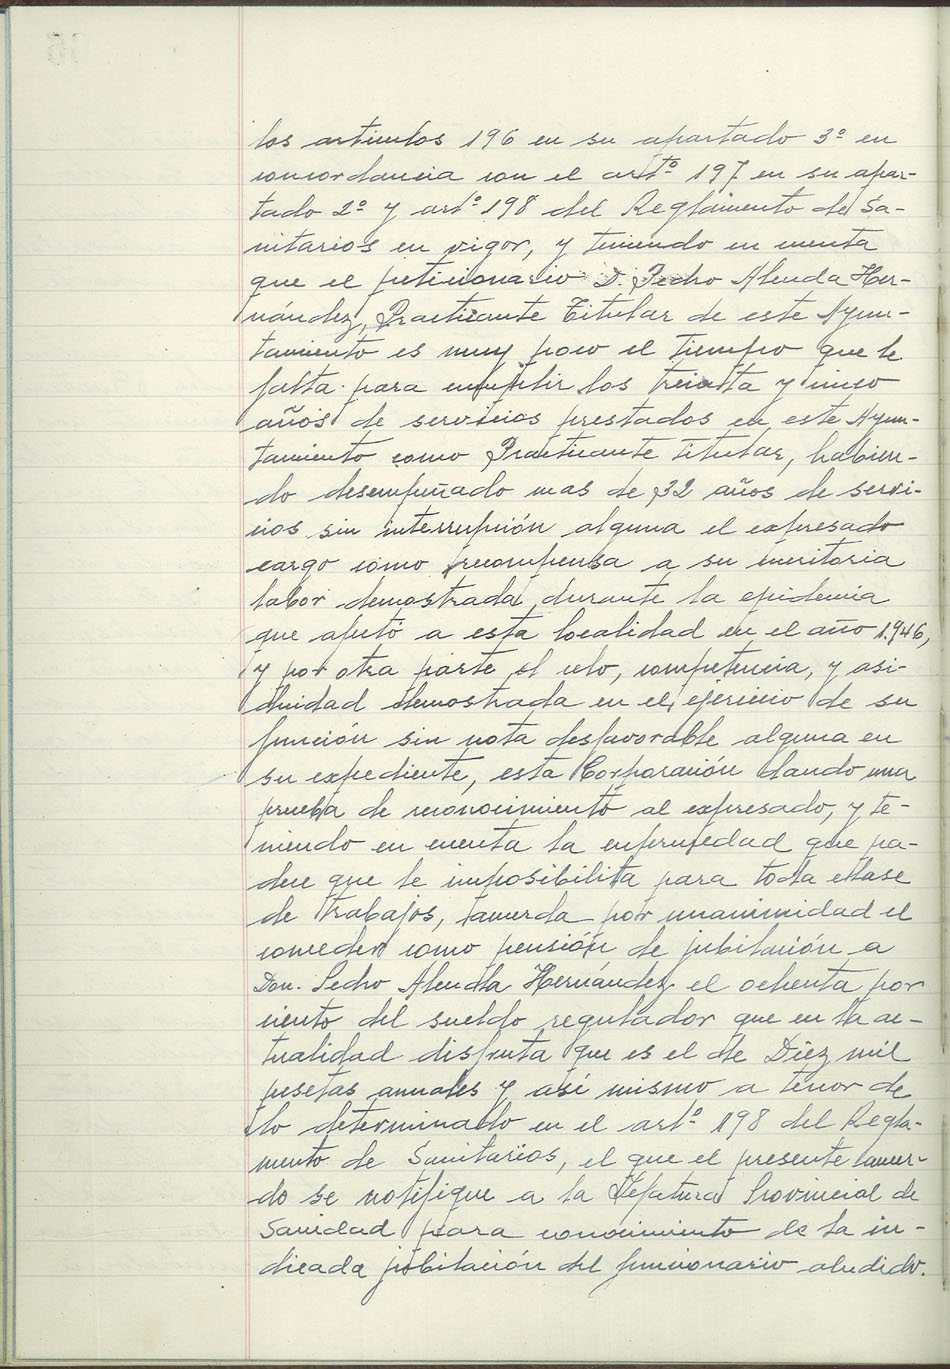 los artículos 196 en su apartado 3º en
concordancia con el artº 197 en su apar-
tado 2º y artº 198 del Reglamento de Sa-
nitarios en vigor, y teniendo en cuenta
que el peticionario D. Pedro Alenda Her-
nández, Practicante Titular de este Ayun-
tamiento es muy poco el tiempo que le
falta para cumplir los treinta y cinco
años de servicios prestados en este Ayun-
tamiento como Practicante titular, habien-
do desempeñado mas de 32 años de servi-
cios sin interrupción alguna el expresado
cargo como recompensa a su meritoria
labor demostrada durante la epidemia
que afectó a esta localidad en el año 1.946,
y por otra parte el celo, competencia, y asi-
duidad demostrada en el ejercicio de su
función sin nota desfavorable alguna en
su expediente, esta Corporación dando una
prueba de reconocimiento al expresado, y te-
niendo en cuenta la enfermedad que pa-
dece que le imposibilita para toda clase
de trabajos, acuerda por unanimidad el
conceder como pensión de jubilación a
Don. Pedro Alenda Hernández el ochenta por
ciento del sueldo regulador que en la ac-
tualidad disfruta que es el de Diez mil
pesetas anuales y así mismo a tenor de
lo determinado en el artº 198 del Regla-
mento de Sanitarios, el que el presente acuer-
do se notifique a la Jefatura Provincial de
Sanidad para conocimiento de la in-
dicada jubilación del funcionario aludido.